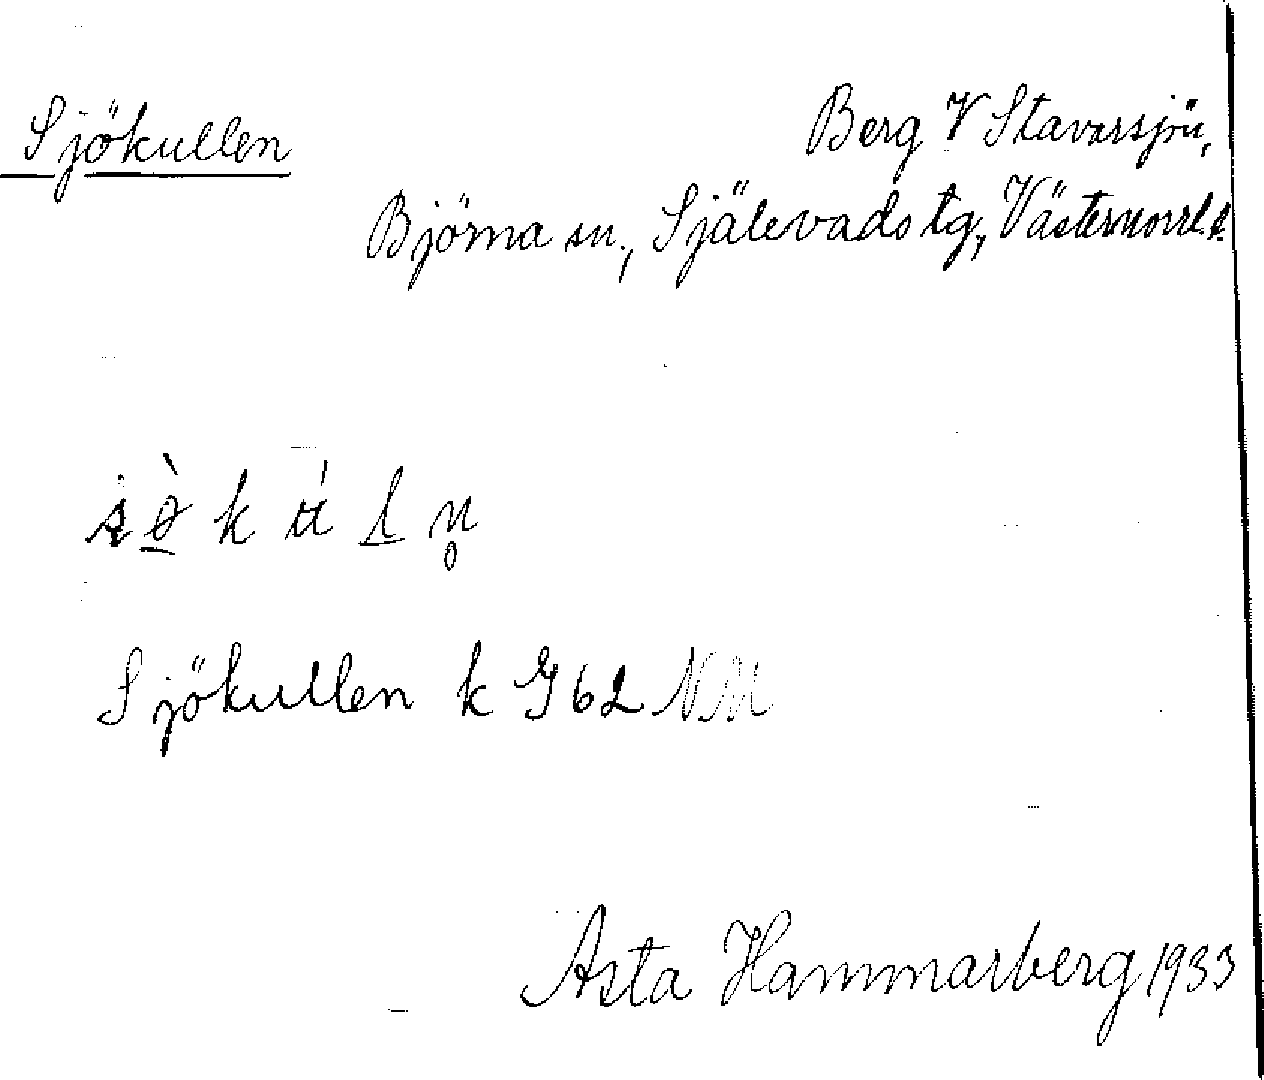 Sjökullen
Berg V Stavarsjön,
Björna sn., Själevads tg, Västernorrl.
Sjökullen k G62 NM
Asta Hammarberg 1933